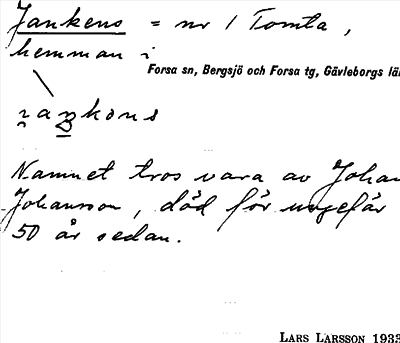 Jankens = nr 1 Tomta,
hemman i
Forsa sn, Bergsjö och Forsa tg, Gävleborgs lä
Namnet tros vara av Johan
Johansson, död för ungefär
50 år sedan.
LARS LARSSON 1933